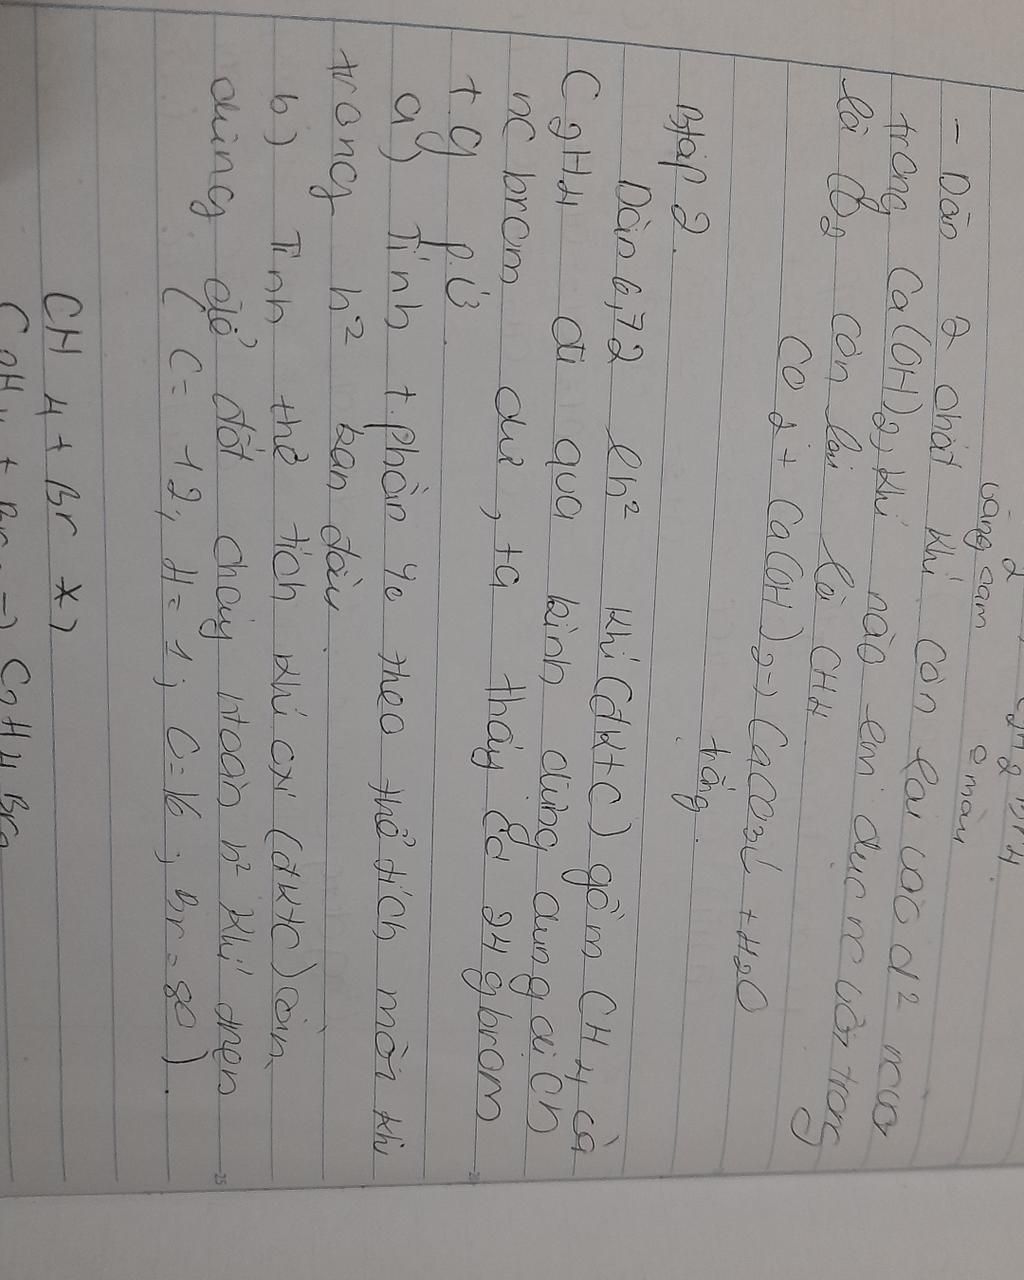 2
vàng cam e màu
- Dẫn 2 chất khí còn lại vào d² nước
trong Ca(OH)2, khí nào em đục nc vôi trong
là CO2 còn lại là CH4
CO2 + Ca(OH)2 → CaCO3↓ + H2O
trắng.
Btập 2.
Dẫn 6,72 l h² khí (đktc) gồm CH4 và
C2H4 đi qua bình đựng dung dịch
nc brom dư, ta thấy có 24 g brom
t g p.ứ
a) Tính t.phần % theo thể tích mỗi khí
trong h² ban đầu.
b) Tính thể tích khí oxi (đktc) cần
dùng để đốt cháy htoàn h² khí trên
(C = 12, H = 1, O = 16, Br = 80).
CH4 + Br ×>
C2H4 + Br2 → C2H4Br2